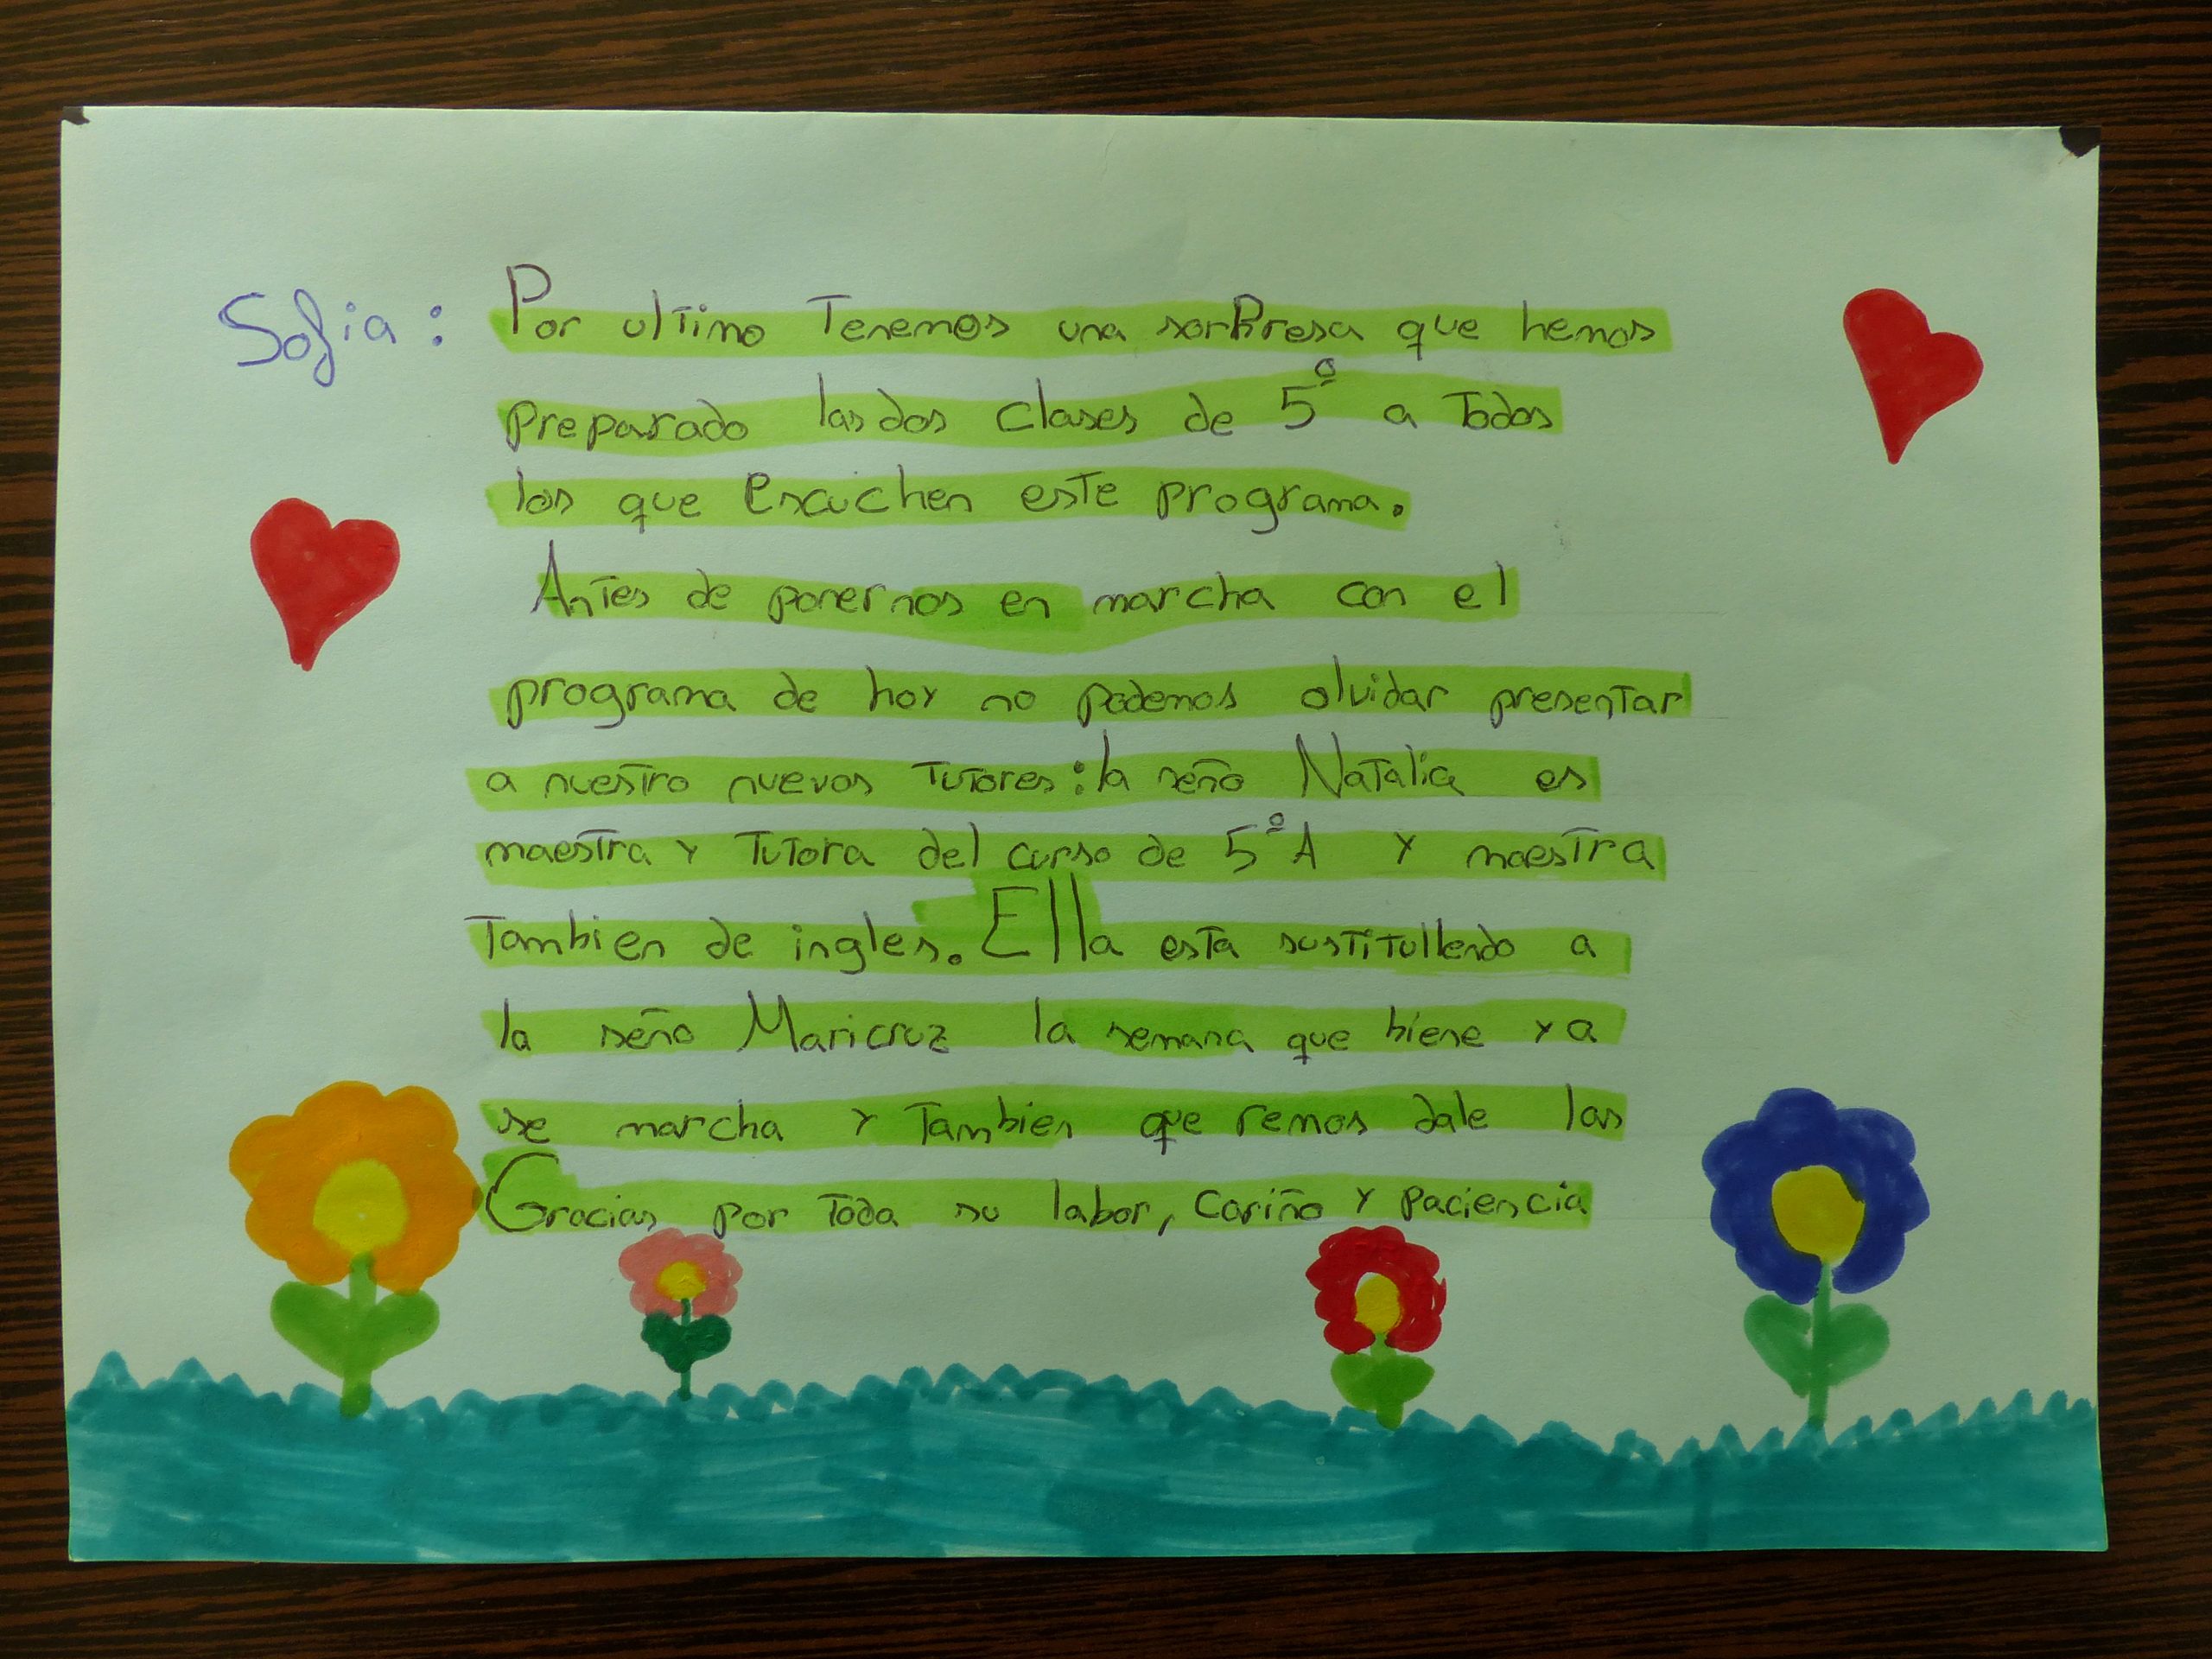 Sofia: Por ultimo Tenemos una sorPresa que hemos
preparado las dos clases de 5º a Todos
los que escuchen este programa.
Antes de ponernos en marcha con el
programa de hoy no podemos olvidar presentar
a nuestro nuevos Tutores: la seño Natalia es
maestra y Tutora del curso de 5º A y maestra
Tambien de ingles. Ella esta sustitullendo a
la seño Maricruz la semana que biene ya
se marcha y Tambien que remos dale las
Gracias por Toda su labor, Cariño y Paciencia